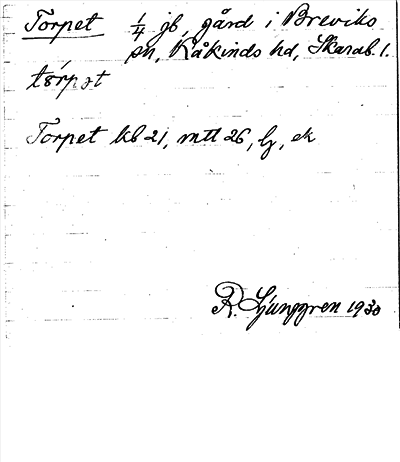 Torpet 1/4 jb, gård i Breviks
sn, Kåkinds hd, Skarab. l.
tǒrpət
Torpet kb 21, mtl 26, lj, ek
R. Ljunggren 1930